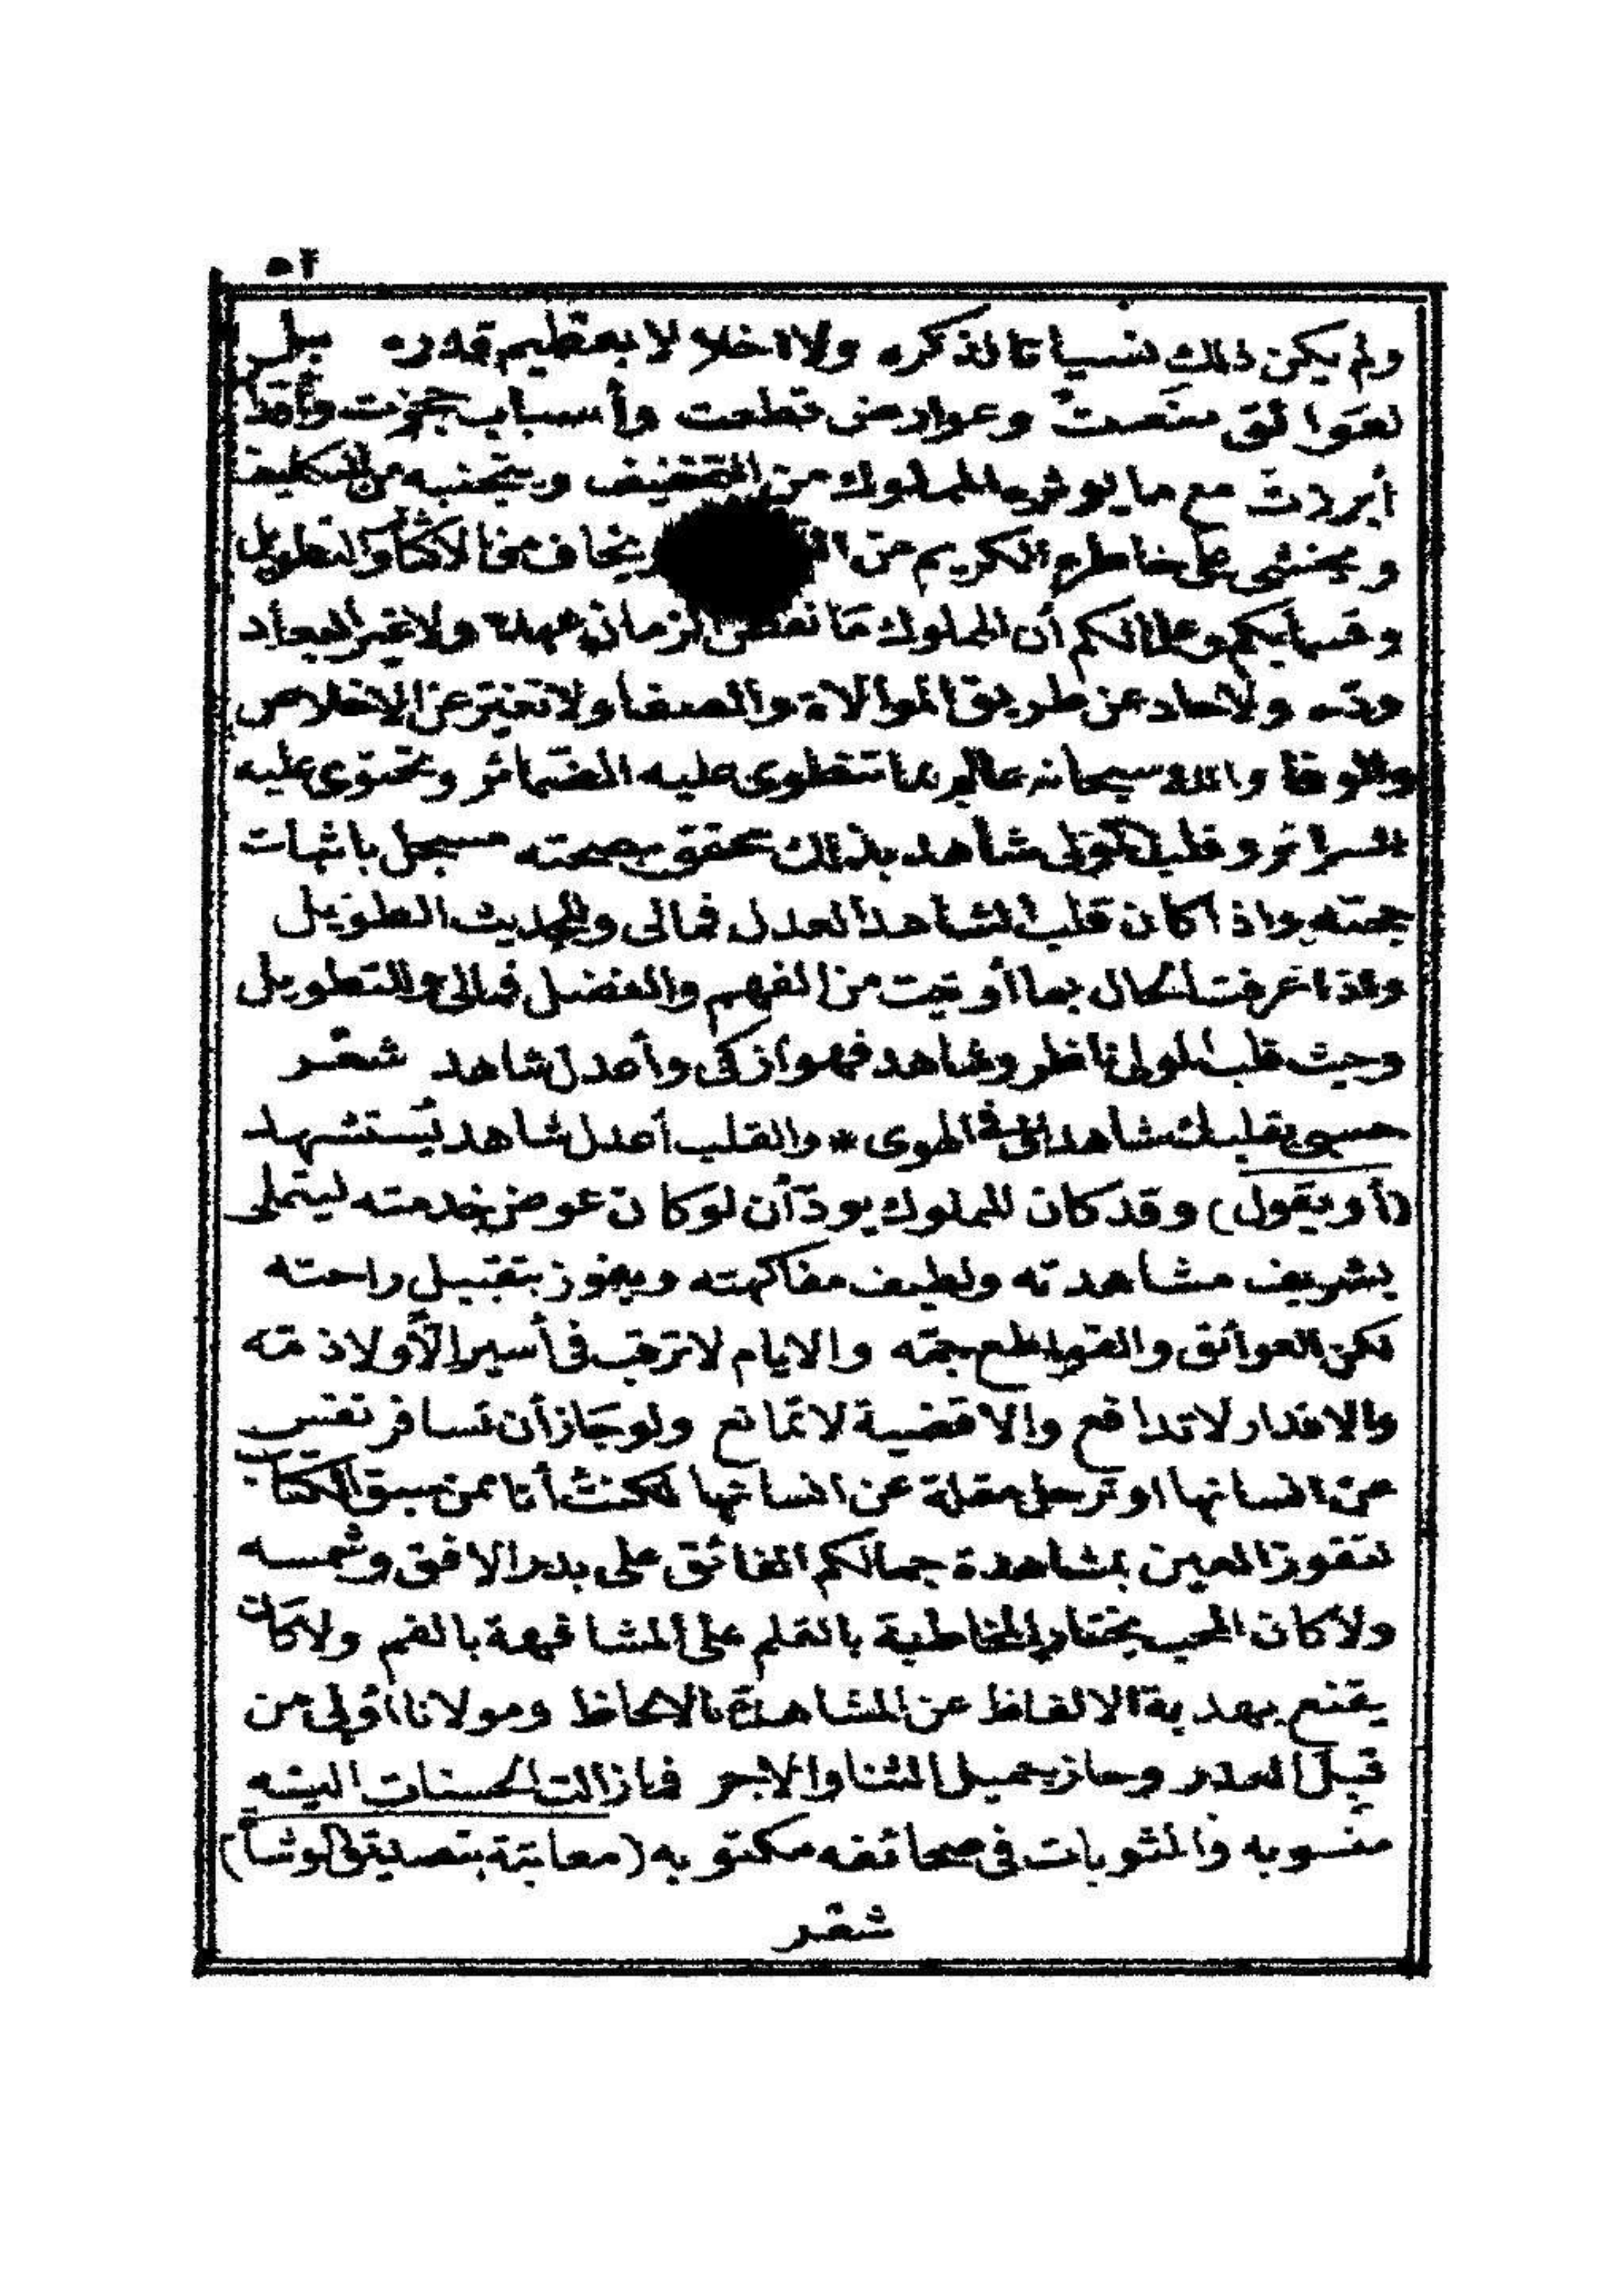 ٥٢
ولم يكن ذلك نسيانا لذكره ولا اخلالا بعظيم قدره بل
لعوائق منعت وعوارض قطعت وأسباب حجزت وأقدار
أبرزت مع ما يوثره المملوك من التخفيف ويتجنبه من التكليف
ويخشى على خاطره الكريم من ويخاف مخا الاكثار والتطويل
وقسما بكم وعلالكم أن المملوك ما نقض الزمان عهده ولا غير البعاد
وده ولا حاد عن طريق الموالاة والصفا ولا تغير عن الاخلاص
والوفا والله سبحانه عالم بما تنطوى عليه الضمائر وتحتوى عليه
السرائر وقلب المولى شاهد بذلك محقق بصحته مسجل باثبات
حجته واذا كان قلب الشاهد العدل فمالى والحديث الطويل
واذا عرفت الحال بما أوتيت من الفهم والفضل فمالى والتطويل
وحيث قلب المولى ناظر وشاهد فهو ازكى وأعدل شاهد شعر
حسبى بقلبك شاهدا فى الهوى * والقلب أعدل شاهد يستشهد
(أو يقول) وقد كان المملوك يود أن لو كان عوض خدمته ليتملى
بشريف مشاهدته ولطيف مفاكهته ويفوز بتقبيل راحته
لكن العوائق والقواطع جمه والايام لا ترقب فى أسير الا ولا ذمه
والاقدار لا تدافع والاقضية لا تمانع ولو جاز أن تسافر نفس
عن انسانها او ترحل مقلة عن انسانها لكنت أنا ممن سبق الكتاب
لتفوز العين بمشاهدة جمالكم الفائق على بدر الافق وشمسه
ولا كان المحب يختار المخاطبة بالقلم على المشافهة بالفم ولا كان
يقنع بهدية الالفاظ عن المشاهدة بالالحاظ ومولانا أولى من
قبل العذر وحاز جميل الثنا والاجر فما زالت الحسنات اليه
منسوبه والمثوبات فى صحائفه مكتوبه (معاتبة بتصديق الوشا)
شعر